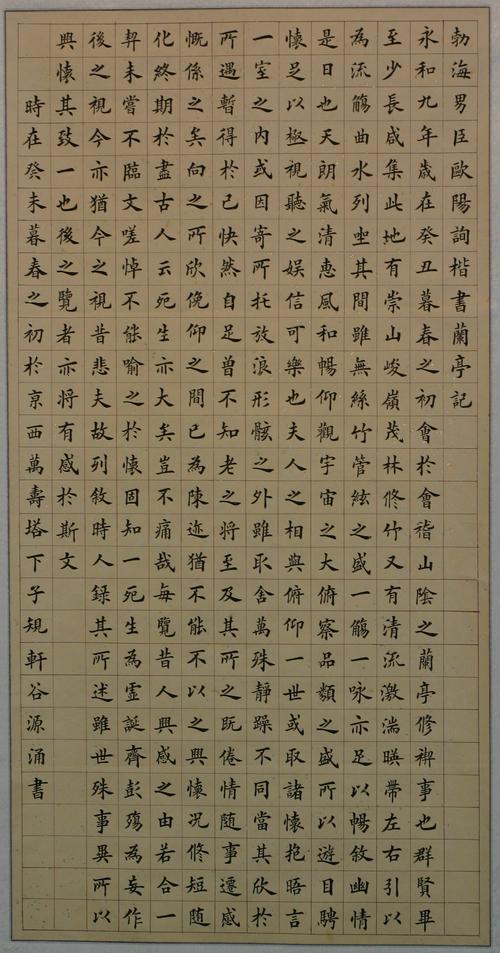 勃海男臣歐陽詢楷書蘭亭記
永和九年歲在癸丑暮春之初會於會稽山陰之蘭亭修禊事也群賢畢
至少長咸集此地有崇山峻嶺茂林修竹又有清流激湍暎帶左右引以
為流觴曲水列坐其間雖無絲竹管絃之盛一觴一咏亦足以暢敘幽情
是日也天朗氣清惠風和暢仰觀宇宙之大俯察品類之盛所以遊目騁
懷足以極視聽之娛信可樂也夫人之相與俯仰一世或取諸懷抱晤言
一室之內或因寄所托放浪形骸之外雖取舍萬殊靜躁不同當其欣於
所遇暫得於己快然自足曾不知老之將至及其所之既倦情随事遷感
慨係之矣向之所欣俛仰之間已為陳迹猶不能不以之興懷況修短随
化終期於盡古人云死生亦大矣豈不痛哉每覽昔人興感之由若合一
契未嘗不臨文嗟悼不能喻之於懷固知一死生為虛誕齊彭殤為妄作
後之視今亦猶今之視昔悲夫故列敘時人錄其所述雖世殊事異所以
興懷其致一也後之覽者亦將有感於斯文
時在癸未暮春之初於京西萬壽塔下子規軒谷源涌書